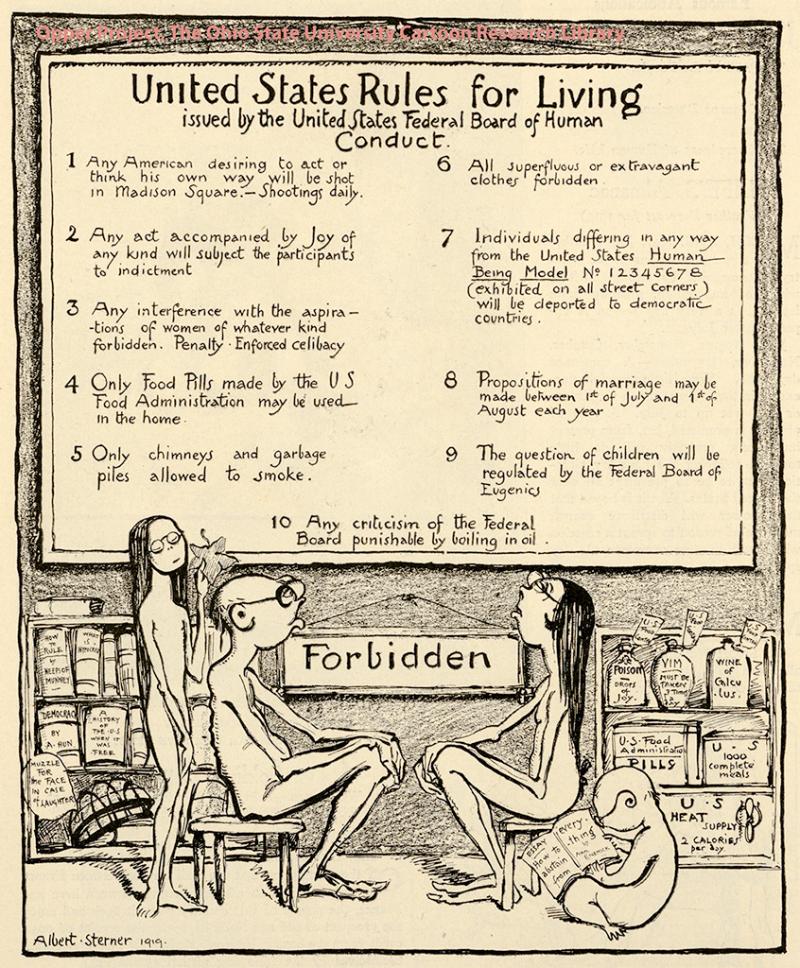 Opper Project, The Ohio State University Cartoon Research Library
United States Rules for Living
issued by the United States Federal Board of Human
Conduct.
1 Any American desiring to act or
think his own way will be shot
in Madison Square. – Shootings daily.
2 Any act accompanied by Joy of
any kind will subject the participants
to indictment
3 Any interference with the aspira-
-tions of women of whatever kind
forbidden. Penalty · Enforced celibacy
4 Only Food Pills made by the U S
Food Administration may be used
in the home.
5 Only chimneys and garbage
piles allowed to smoke.
6 All superfluous or extravagant
clothes forbidden
7 Individuals differing in any way
from the United States Human
Being Model No 12345678
(exhibited on all street corners)
will be deported to democratic
countries.
8 Propositions of marriage may be
made between 1st of July and 1st of
August each year
9 The question of children will be
regulated by the Federal Board of
Eugenics
10 Any criticism of the Federal
Board punishable by boiling in oil.
Forbidden
HOW
TO
RULE
BY
WHAT
IS
DEMOCRACY
BY
A. HUN
A
HISTORY
OF THE U·S
WHEN IT
WAS
FREE
MUZZLE
FOR
the FACE
IN CASE
of LAUGHTER
POISON
DROPS
of
Joy.
VIM
MUST BE
TAKEN
3 Times
a Day
WINE
of
Calcu
lus.
U·S·Food
Administration
PILLS
U·S
1000
complete
meals
U·S
HEAT
SUPPLY
2 CALORIES
per day
ESSAY
How to
abstain
from
every-
thing
Albert·Sterner 1919.